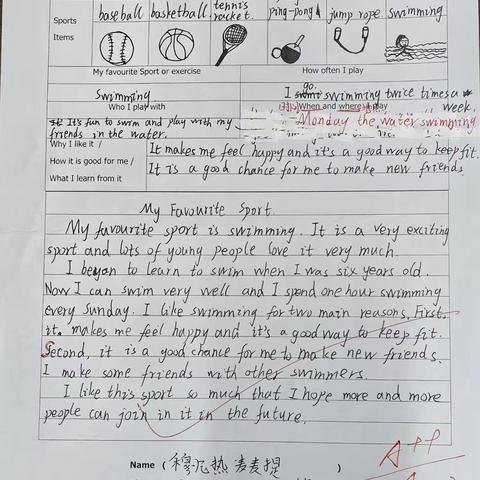 Sports Items
baseball basketball tennis racket. ping-pong jump rope swimming
My favourite Sport or exercise How often I play
swimming I go swimming twice times a week.
Who I play with When and where I play
It's fun to swim and play with my friends in the water. Monday the water swimming
Why I like it /
How it is good for me /
What I learn from it
It makes me feel happy and it's a good way to keep fit.
It is a good chance for me to make new friends.
My Favourite Sport.
My favourite sport is swimming. It is a very exciting
sport and lots of young people love it very much.
I began to learn to swim when I was six years old.
Now I can swim very well and I spend one hour swimming
every Sunday. I like swimming for two main reasons, First.
it. makes me feel happy and it's a good way to keep fit.
Second, it is a good chance for me to make new friends.
I make some friends with other swimmers.
I like this sport so much that I hope more and more
people can join in it in the future.
Name ( 穆尼热 麦麦提 )
A++